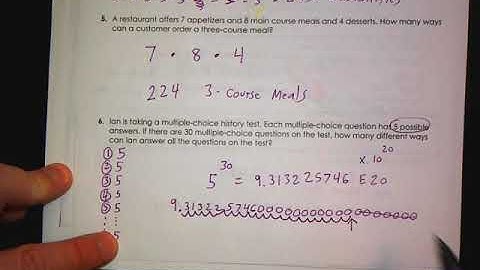 5. A restaurant offers 7 appetizers and 8 main course meals and 4 desserts. How many ways
can a customer order a three-course meal?
7 · 8 · 4
224 3-Course Meals
6. Ian is taking a multiple-choice history test. Each multiple-choice question has 5 possible
answers. If there are 30 multiple-choice questions on the test, how many different ways
can Ian answer all the questions on the test?
① 5
② 5
③ 5
④ 5
⑤ 5
: :
5
x 10^20
5^30 = 9.313225746 E20